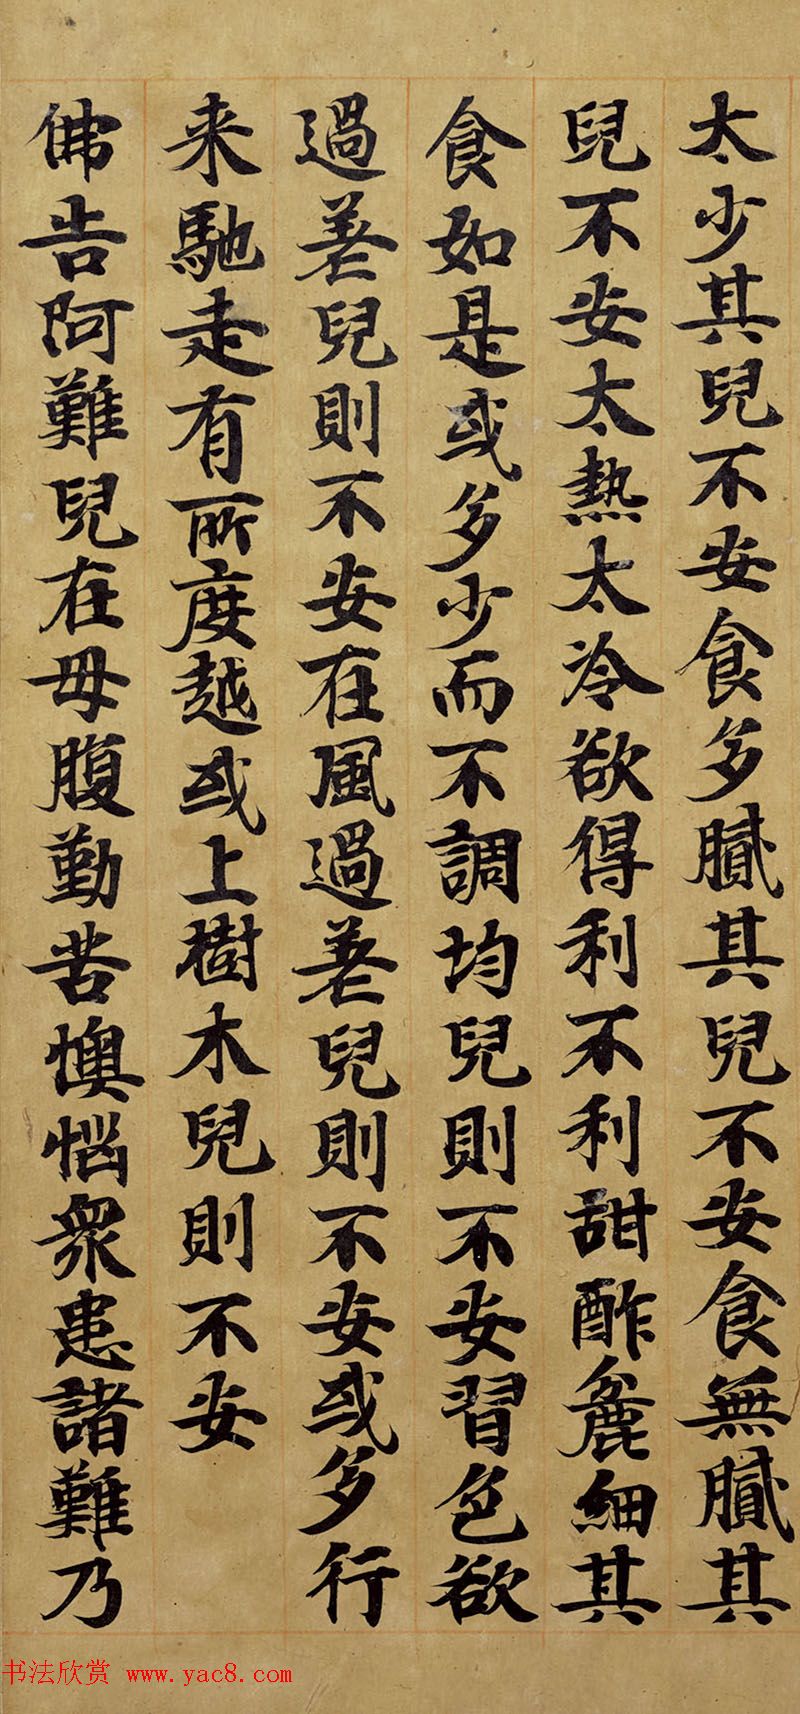 太少其兒不安食多膩其兒不安食無膩其
兒不安太熱太冷欲得利不利甜酢麁細其
食如是或多少而不調均兒則不安習色欲
過差兒則不安在風過差兒則不安或多行
来馳走有所度越或上樹木兒則不安
佛告阿難兒在母腹勤苦懊惱衆患諸難乃
书法欣赏 www.yac8.com